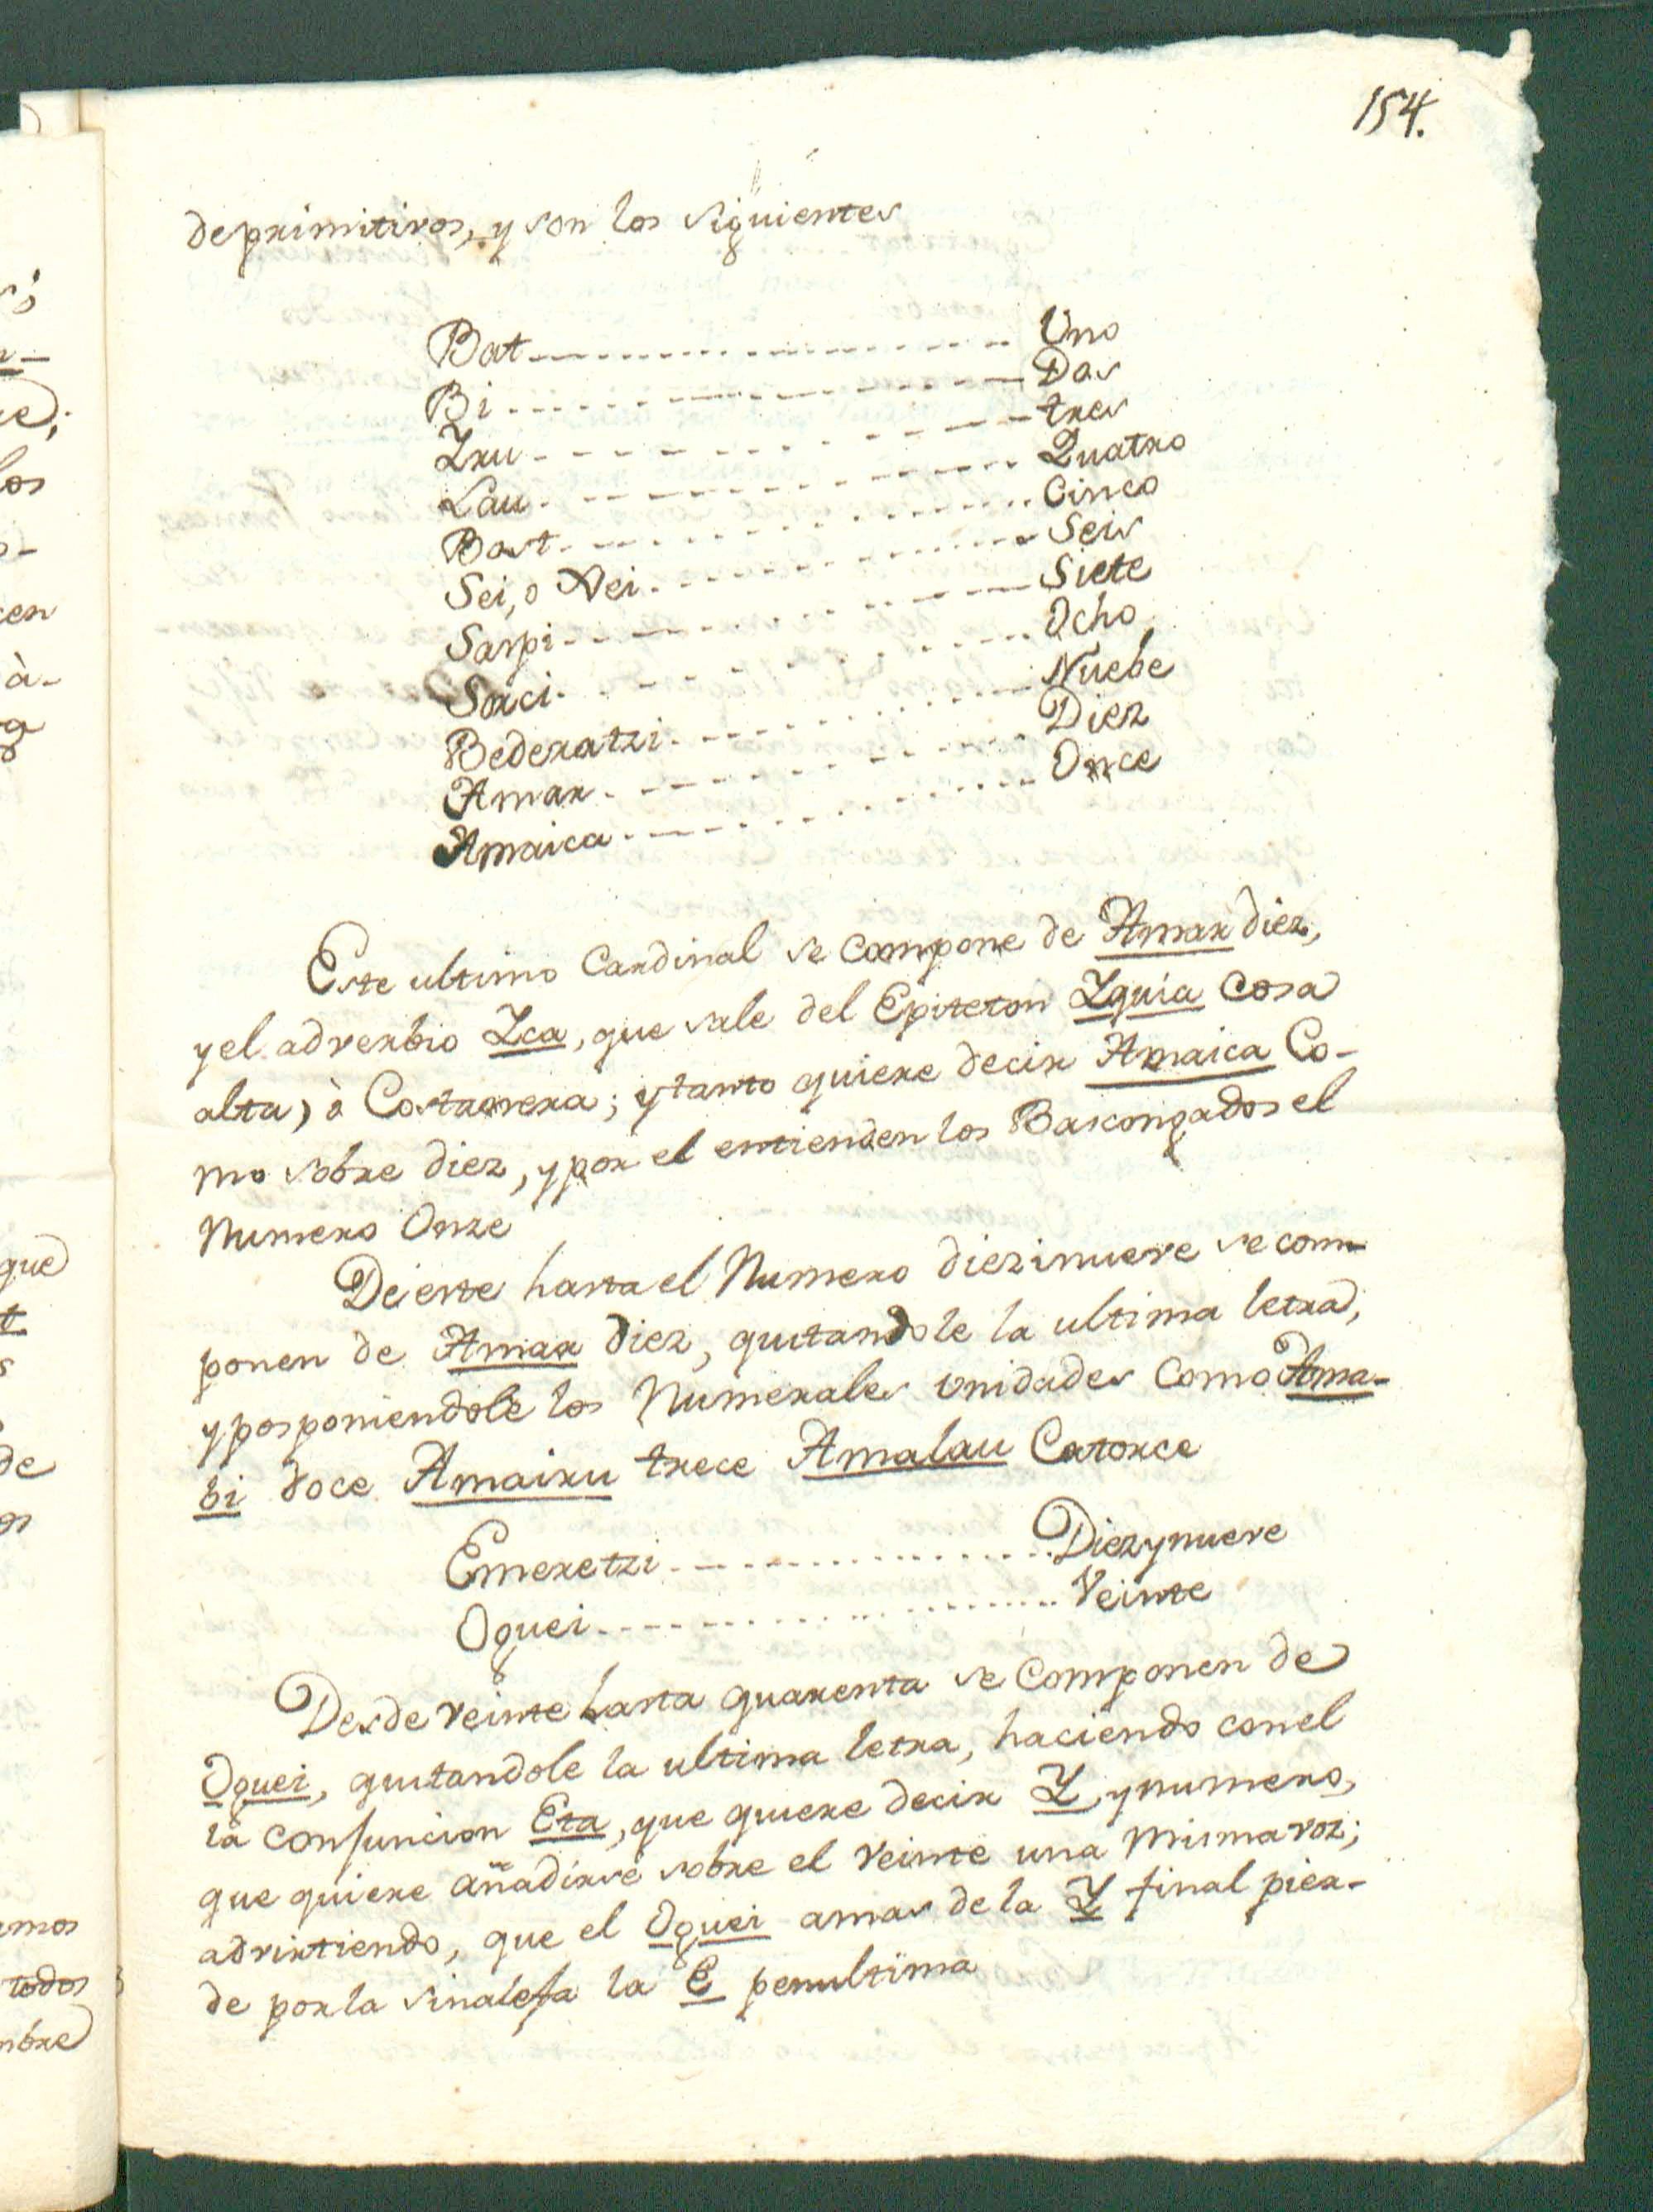 154.
de primitivos, y son los siguientes
Bat ---------- Uno
Bi ---------- Dos
Yru ---------- tres
Lau ---------- Quatro
Bost ---------- Cinco
Sei, o Xei ---------- Seis
Saspi ---------- Siete
Sorci ---------- Ocho
Bederatzi ---------- Nuebe
Amar ---------- Diez
Amaica ---------- Once
Este ultimo Cardinal se compone de Amar diez,
y el adverbio Yca, que sale del Epiteton Yguia Cosa
alta, ò Costanera; y tanto quiere decir Amaica Co-
mo sobre diez, y por el entienden los Bascongados el
Numero Onze
De este hasta el Numero diezinueve se com-
ponen de Amar diez, quitandole la ultima letra,
y posponiendole los Numerales unidades como Ama-
bi doce Amairu trece Amalau Catorce
Emeretzi ---------- Diez y nueve
Oguei ---------- Veinte
Desde veinte hasta quarenta se componen de
Oguei, quitandole la ultima letra, haciendo con el
la conjuncion Eta, que quiere decir Y, y numero,
que quiere añadirse sobre el veinte una misma voz;
advirtiendo, que el Oguei amas de la Y final pier-
de por la sinalefa la E penultima
que
de
todos